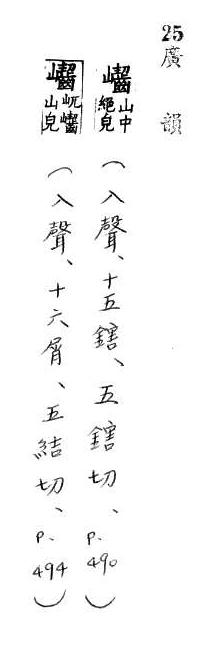 25 廣韻
山中絕皃(入聲、十五鎋、五鎋切、p.490)
屼 山皃(入聲、十六屑、五結切、p.494)